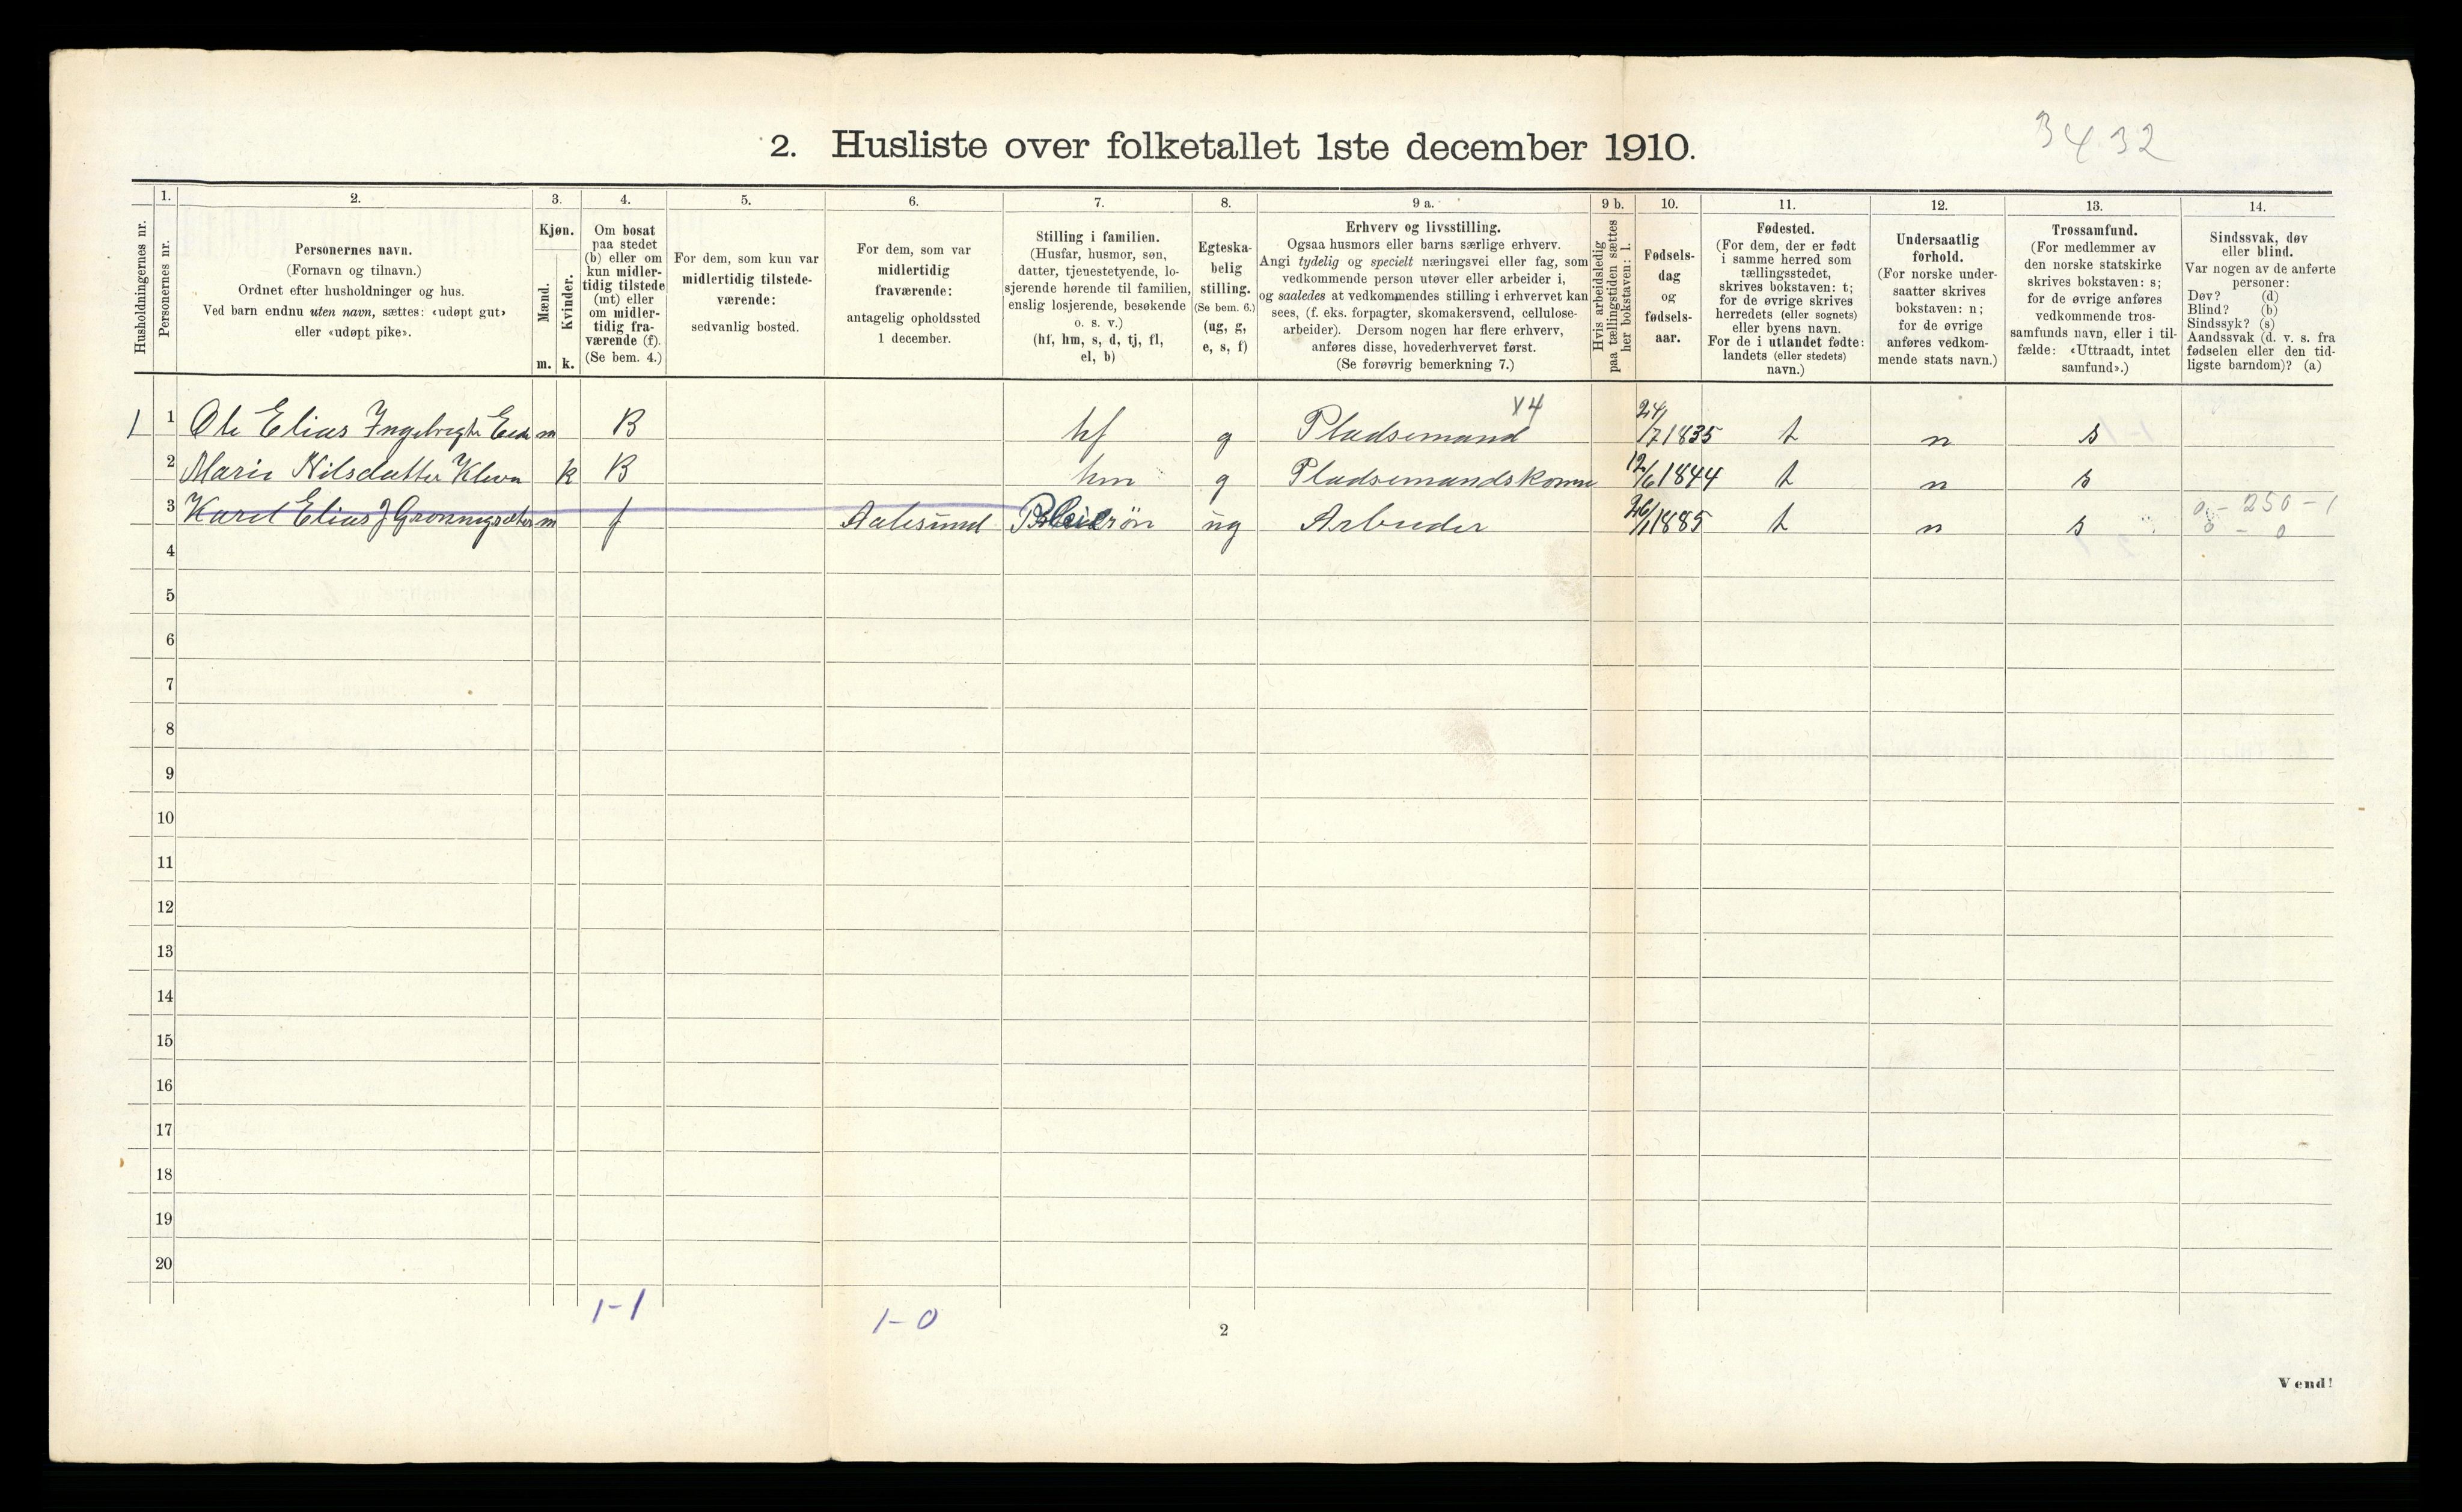 3432
2. Husliste over folketallet 1ste december 1910.
Husholdningernes nr.
1. Personernes nr.
2. Personernes navn.
(Fornavn og tilnavn.)
Ordnet efter husholdninger og hus.
Ved barn endnu uten navn, sættes: «udøpt gut»
eller «udøpt pike».
3. Kjøn.
Mænd. m.
Kvinder. k.
4. Om bosat
paa stedet
(b) eller om
kun midler-
tidig tilstede
(mt) eller
om midler-
tidig fra-
værende (f).
(Se bem. 4.)
5. For dem, som kun var
midlertidig tilstede-
værende:
sedvanlig bosted.
6. For dem, som var
midlertidig
fraværende:
antagelig opholdssted
1 december.
7. Stilling i familien.
(Husfar, husmor, søn,
datter, tjenestetyende, lo-
sjerende hørende til familien,
enslig losjerende, besøkende
o. s. v.)
(hf, hm, s, d, tj, fl,
el, b)
8. Egteska-
belig
stilling.
(Se bem. 6.)
(ug, g,
e, s, f)
9 a. Erhverv og livsstilling.
Ogsaa husmors eller barns særlige erhverv.
Angi tydelig og specielt næringsvei eller fag, som
vedkommende person utøver eller arbeider i,
og saaledes at vedkommendes stilling i erhvervet kan
sees, (f. eks. forpagter, skomakersvend, cellulose-
arbeider). Dersom nogen har flere erhverv,
anføres disse, hovederhvervet først.
(Se forøvrig bemerkning 7.)
9 b. Hvis arbeidsledig
paa tællingstiden sættes
her bokstaven: l.
10. Fødsels-
dag
og
fødsels-
aar.
11. Fødested.
(For dem, der er født
i samme herred som
tællingsstedet,
skrives bokstaven: t;
for de øvrige skrives
herredets (eller sognets)
eller byens navn.
For de i utlandet fødte:
landets (eller stedets)
navn.)
12. Undersaatlig
forhold.
(For norske under-
saatter skrives
bokstaven: n;
for de øvrige
anføres vedkom-
mende stats navn.)
13. Trossamfund.
(For medlemmer av
den norske statskirke
skrives bokstaven: s;
for de øvrige anføres
vedkommende tros-
samfunds navn, eller i til-
fælde: «Uttraadt, intet
samfund».)
14. Sindssvak, døv
eller blind.
Var nogen av de anførte
personer:
Døv? (d)
Blind? (b)
Sindssyk? (s)
Aandssvak (d. v. s. fra
fødselen eller den tid-
ligste barndom)? (a)
x4
1 1 Ole Elias Ingebregts m B hf g Pladsemand 24/7 1835 t n s
2 Marie Nilsdatter Kleva k B hm g Pladsemandskone 12/6 1844 t n s
3 Karel Elias J Grønnigsæter m f Aalesund ug Arbeider 26/1 1885 t n s
0 - 250 - 1
0 - 0
4
5
6
7
8
9
10
11
12
13
14
15
16
17
18
19
20
1-1
1-0
2
Vend!